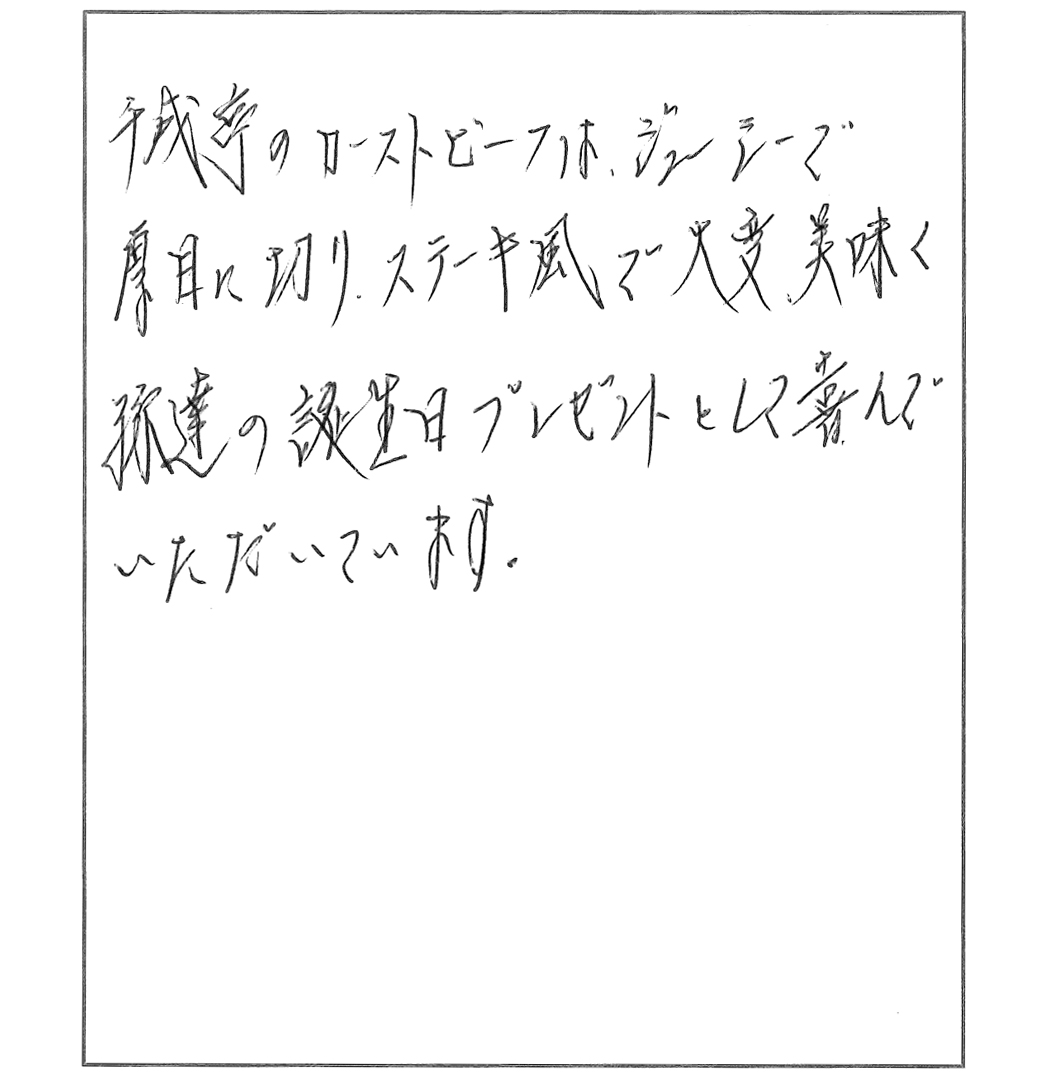 千成亭のローストビーフは、ジューシーで
厚目に切り、ステーキ風で大変美味く
孫達の誕生日プレゼントとして喜んで
いただいています。